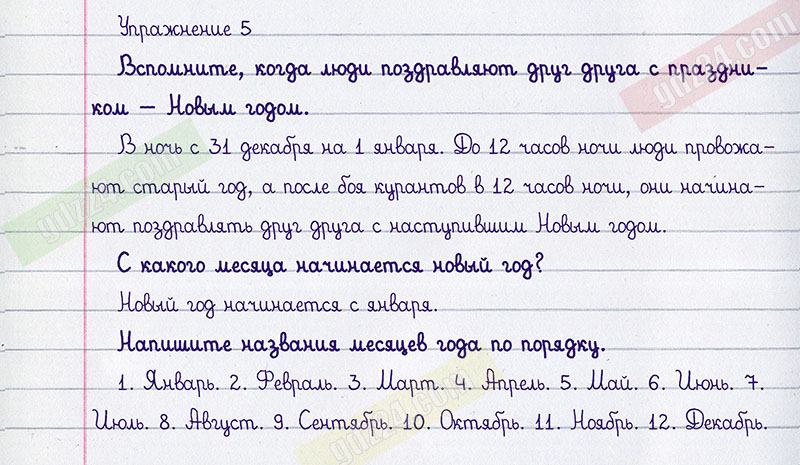 Упражнение 5
Вспомните, когда люди поздравляют друг друга с праздни-
ком – Новым годом.
В ночь с 31 декабря на 1 января. До 12 часов ночи люди провожа-
ют старый год, а после боя курантов в 12 часов ночи, они начина-
ют поздравлять друг друга с наступившим Новым годом.
С какого месяца начинается новый год?
Новый год начинается с января.
Напишите названия месяцев года по порядку.
1. Январь. 2. Февраль. 3. Март. 4. Апрель. 5. Май. 6. Июнь. 7.
Июль. 8. Август. 9. Сентябрь. 10. Октябрь. 11. Ноябрь. 12. Декабрь.
gdz24.com
gdz24.com
gdz24.com